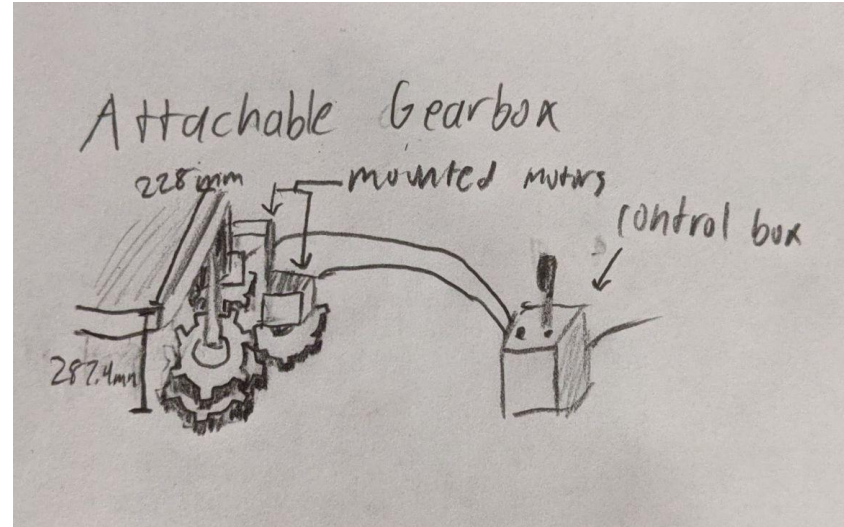 Attachable Gearbox
228mm
mounted motors
control box
287.4mm